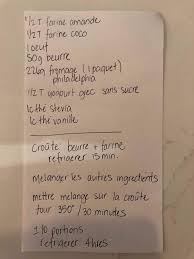 1/2 T farine amande
1/2 T farine coco
1 oeuf
50g beurre
226g fromage (1 paquet)
philadelphia
1/2 T yogourt grec sans sucre
1c thé stevia
1c thé vanille
Croûte: beurre + farine
refrigerer 15 min.
melanger les autres ingredients
mettre melange sur la croûte
four 350° / 30 minutes
10 portions
refrigerer 4 hres